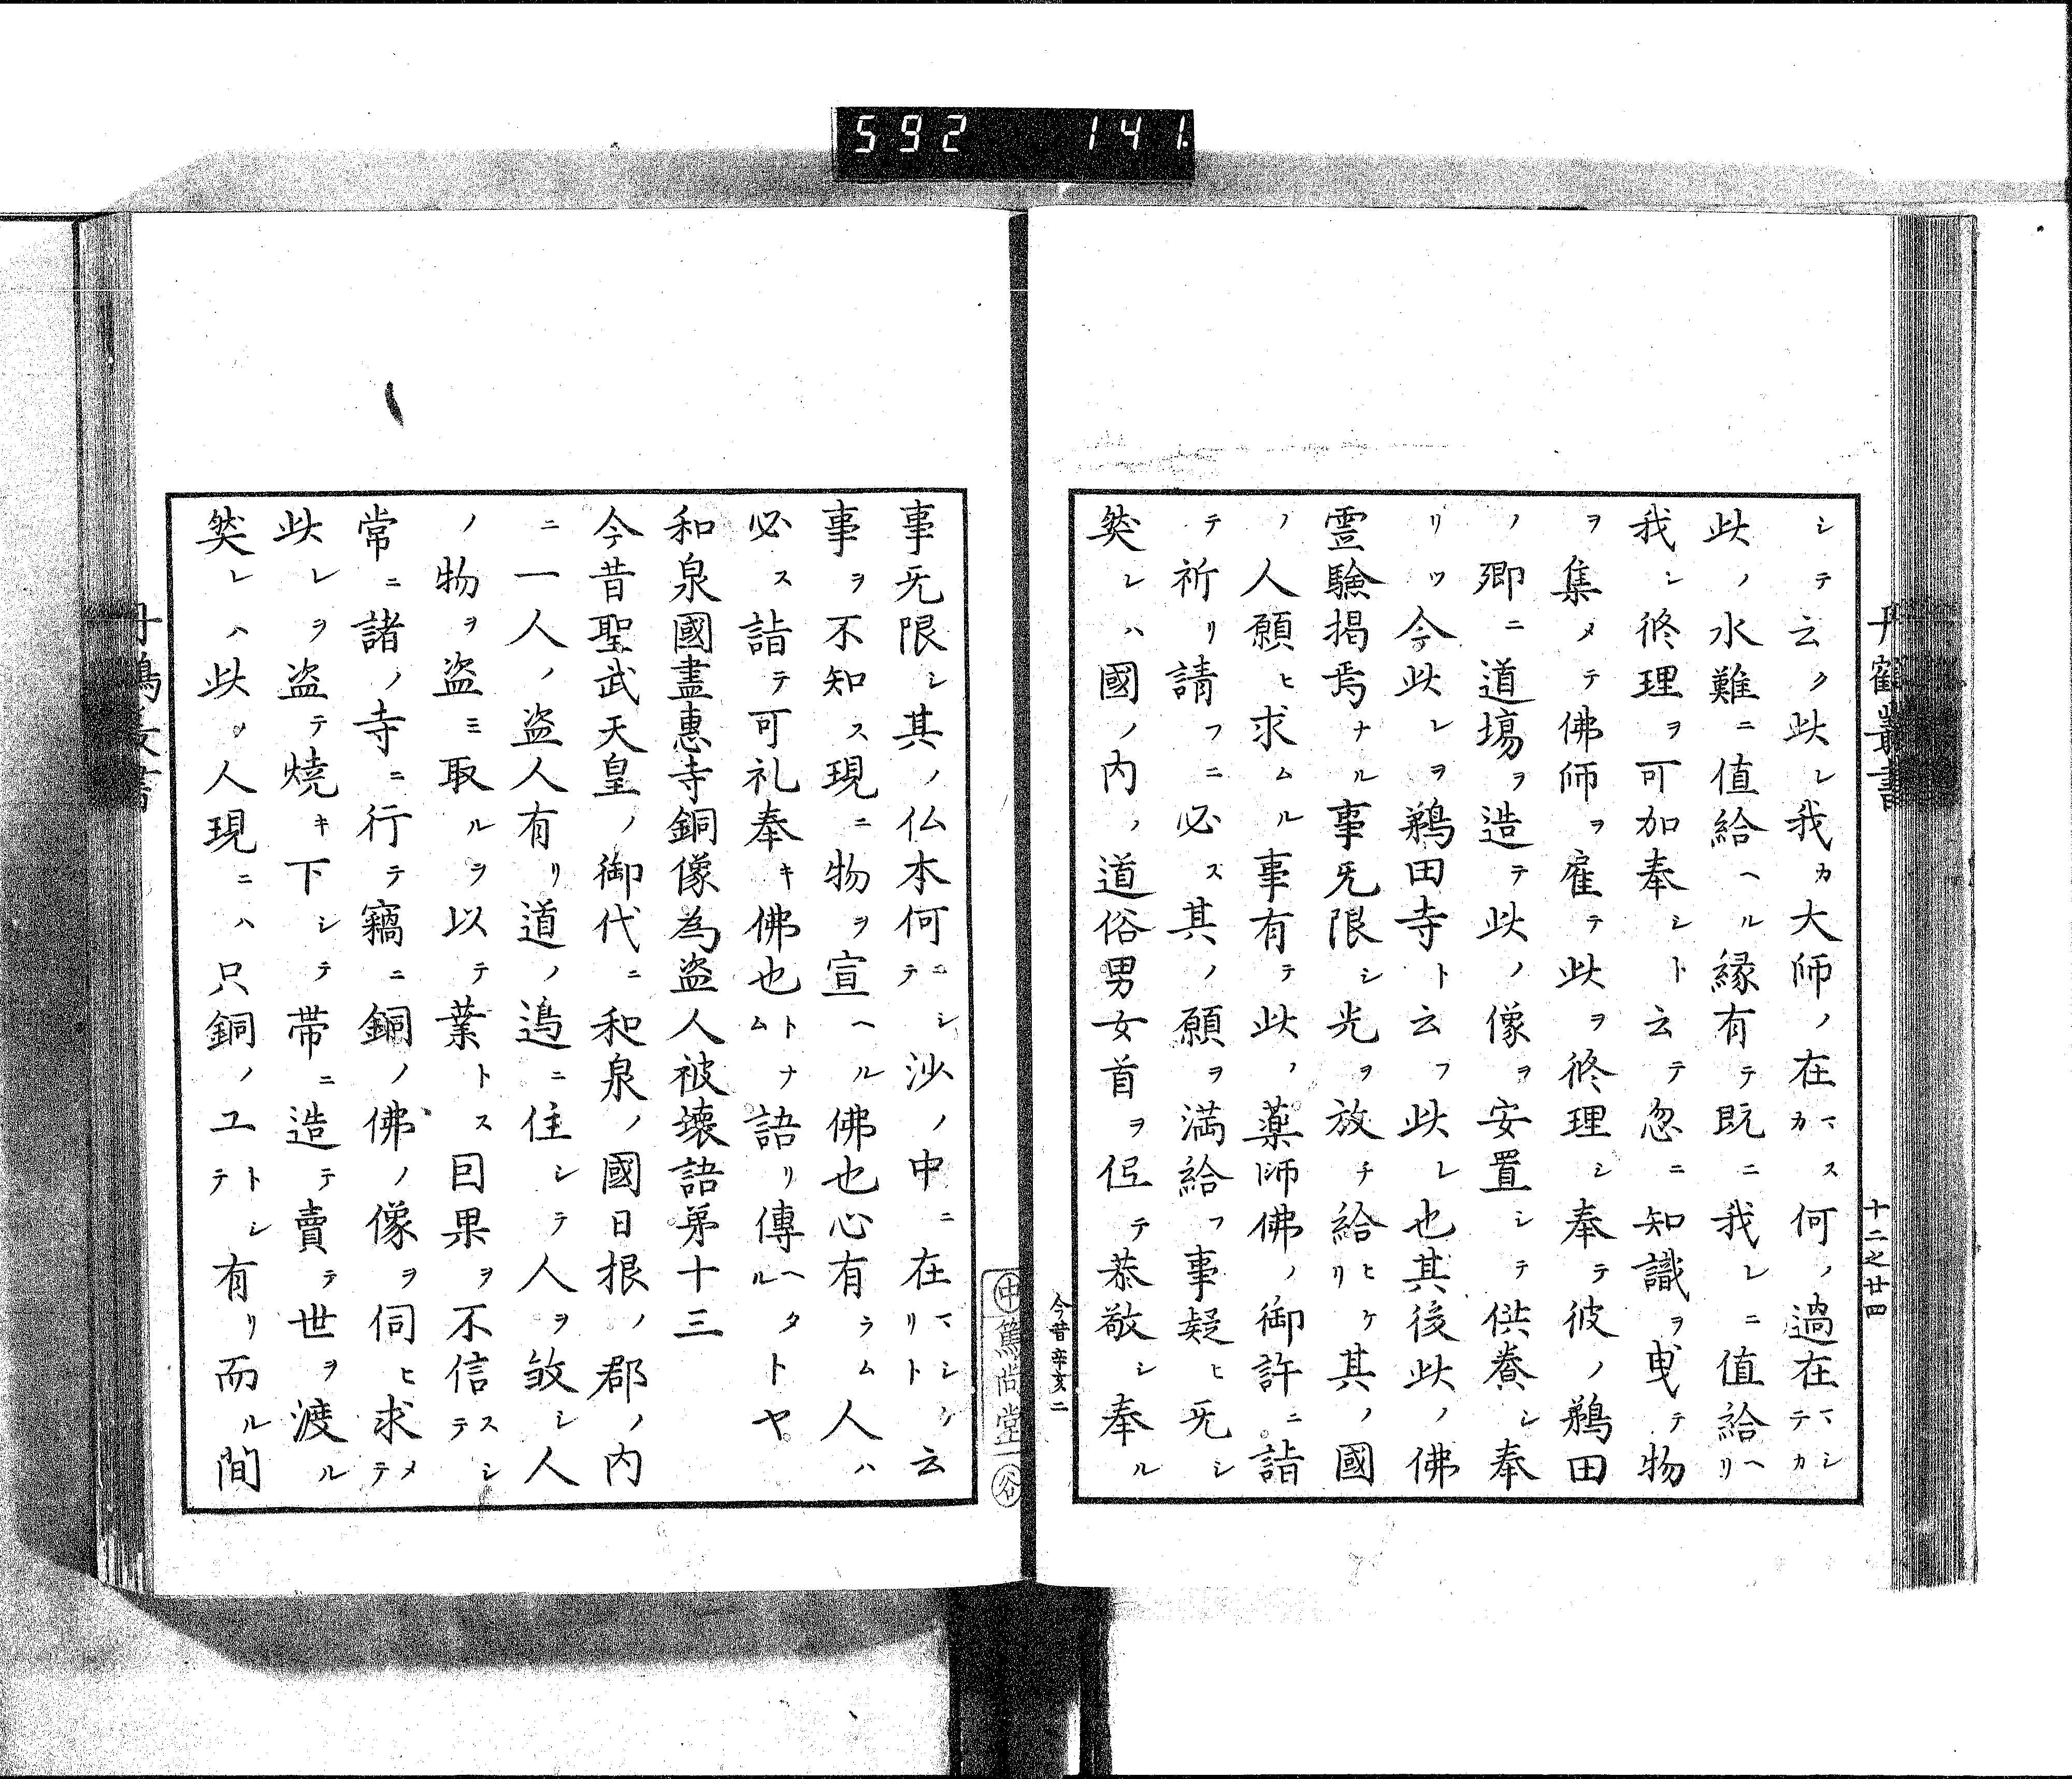 592 141.
丹鶴叢書
十二之廿四
シテ云ク此レ我カ大師ノ在マスカ何ノ過在マシテカ
此ノ水難ニ値給ヘル縁有テ既ニ我レニ値給ヘリ
我レ修理ヲ可加奉シト云テ忽ニ知識ヲ曳テ物
ヲ集メテ佛師ヲ雇テ此ヲ修理シ奉テ彼ノ鵜田
ノ郷ニ道場ヲ造テ此ノ像ヲ安置シテ供養シ奉
リツ今此レヲ鵜田寺ト云フ此レ也其後此ノ佛
霊驗掲焉ナル事旡限シ光ヲ放チ給ヒケリ其ノ國
ノ人願ヒ求ムル事有テ此ノ薬師佛ノ御許ニ詣
テ祈リ請フニ必ス其ノ願ヲ満給フ事疑ヒ旡シ
然レハ國ノ内ノ道俗男女首ヲ低テ恭敬シ奉ル
今昔辛亥二
事旡限シ其ノ仏本何ニシテ沙ノ中ニ在マシケリト云
事ヲ不知ス現ニ物ヲ宣ヘル佛也心有ラム人ハ
必ス詣テ可礼奉キ佛也トナム語リ傳ヘタルトヤ
和泉國盡惠寺銅像為盗人被壊語第十三
今昔聖武天皇ノ御代ニ和泉ノ國日根ノ郡ノ内
ニ一人ノ盗人有リ道ノ邊ニ住シテ人ヲ煞シ人
ノ物ヲ盗ミ取ルヲ以テ業トス因果ヲ不信スシテ
常ニ諸ノ寺ニ行テ竊ニ銅ノ佛ノ像ヲ伺ヒ求メテ
此レヲ盗テ焼キ下シテ帯ニ造テ賣テ世ヲ渡ル
然レハ此ノ人現ニハ只銅ノ工トシテ有リ而ル間